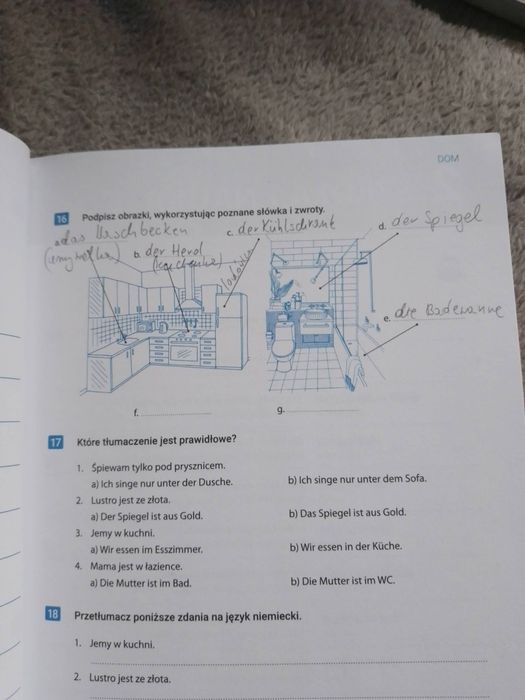 DOM
16 Podpisz obrazki, wykorzystując poznane słówka i zwroty.
a. das Waschbecken
(umywalka)
b. der Herd
(kuchenka)
c. der Kühlschrank
lodówka
d. der Spiegel
e. die Badewanne
f.
g.
17 Które tłumaczenie jest prawidłowe?
1. Śpiewam tylko pod prysznicem.
a) Ich singe nur unter der Dusche. b) Ich singe nur unter dem Sofa.
2. Lustro jest ze złota.
a) Der Spiegel ist aus Gold. b) Das Spiegel ist aus Gold.
3. Jemy w kuchni.
a) Wir essen im Esszimmer. b) Wir essen in der Küche.
4. Mama jest w łazience.
a) Die Mutter ist im Bad. b) Die Mutter ist im WC.
18 Przetłumacz poniższe zdania na język niemiecki.
1. Jemy w kuchni.
2. Lustro jest ze złota.